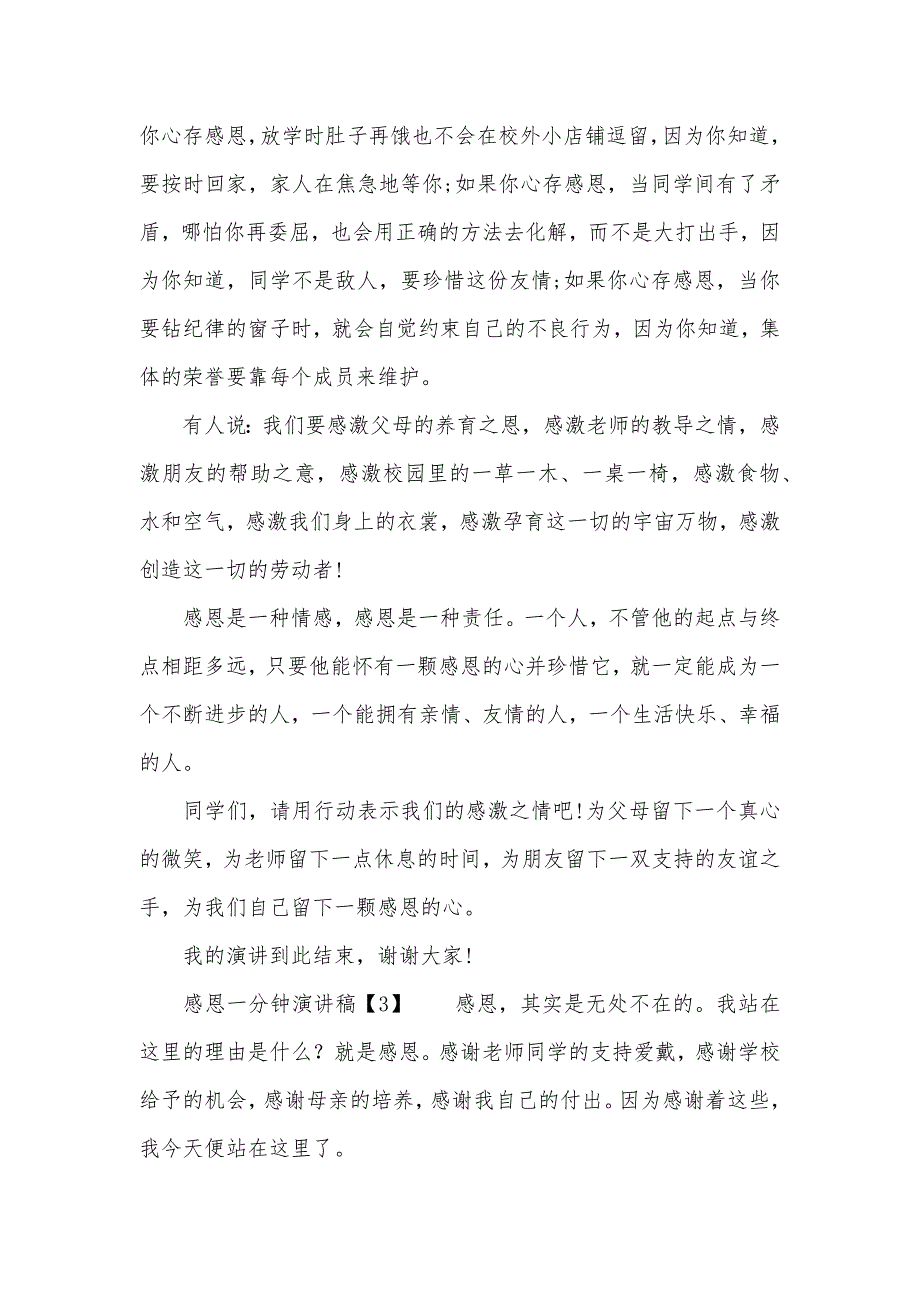 你心存感恩，放学时肚子再饿也不会在校外小店铺逗留，因为你知道，
要按时回家，家人在焦急地等你;如果你心存感恩，当同学间有了矛
盾，哪怕你再委屈，也会用正确的方法去化解，而不是大打出手，因
为你知道，同学不是敌人，要珍惜这份友情;如果你心存感恩，当你
要钻纪律的窗子时，就会自觉约束自己的不良行为，因为你知道，集
体的荣誉要靠每个成员来维护。
有人说：我们要感激父母的养育之恩，感激老师的教导之情，感
激朋友的帮助之意，感激校园里的一草一木、一桌一椅，感激食物、
水和空气，感激我们身上的衣裳，感激孕育这一切的宇宙万物，感激
创造这一切的劳动者!
感恩是一种情感，感恩是一种责任。一个人，不管他的起点与终
点相距多远，只要他能怀有一颗感恩的心并珍惜它，就一定能成为一
个不断进步的人，一个能拥有亲情、友情的人，一个生活快乐、幸福
的人。
同学们，请用行动表示我们的感激之情吧!为父母留下一个真心
的微笑，为老师留下一点休息的时间，为朋友留下一双支持的友谊之
手，为我们自己留下一颗感恩的心。
我的演讲到此结束，谢谢大家!
感恩一分钟演讲稿【3】　　感恩，其实是无处不在的。我站在
这里的理由是什么？就是感恩。感谢老师同学的支持爱戴，感谢学校
给予的机会，感谢母亲的培养，感谢我自己的付出。因为感谢着这些，
我今天便站在这里了。